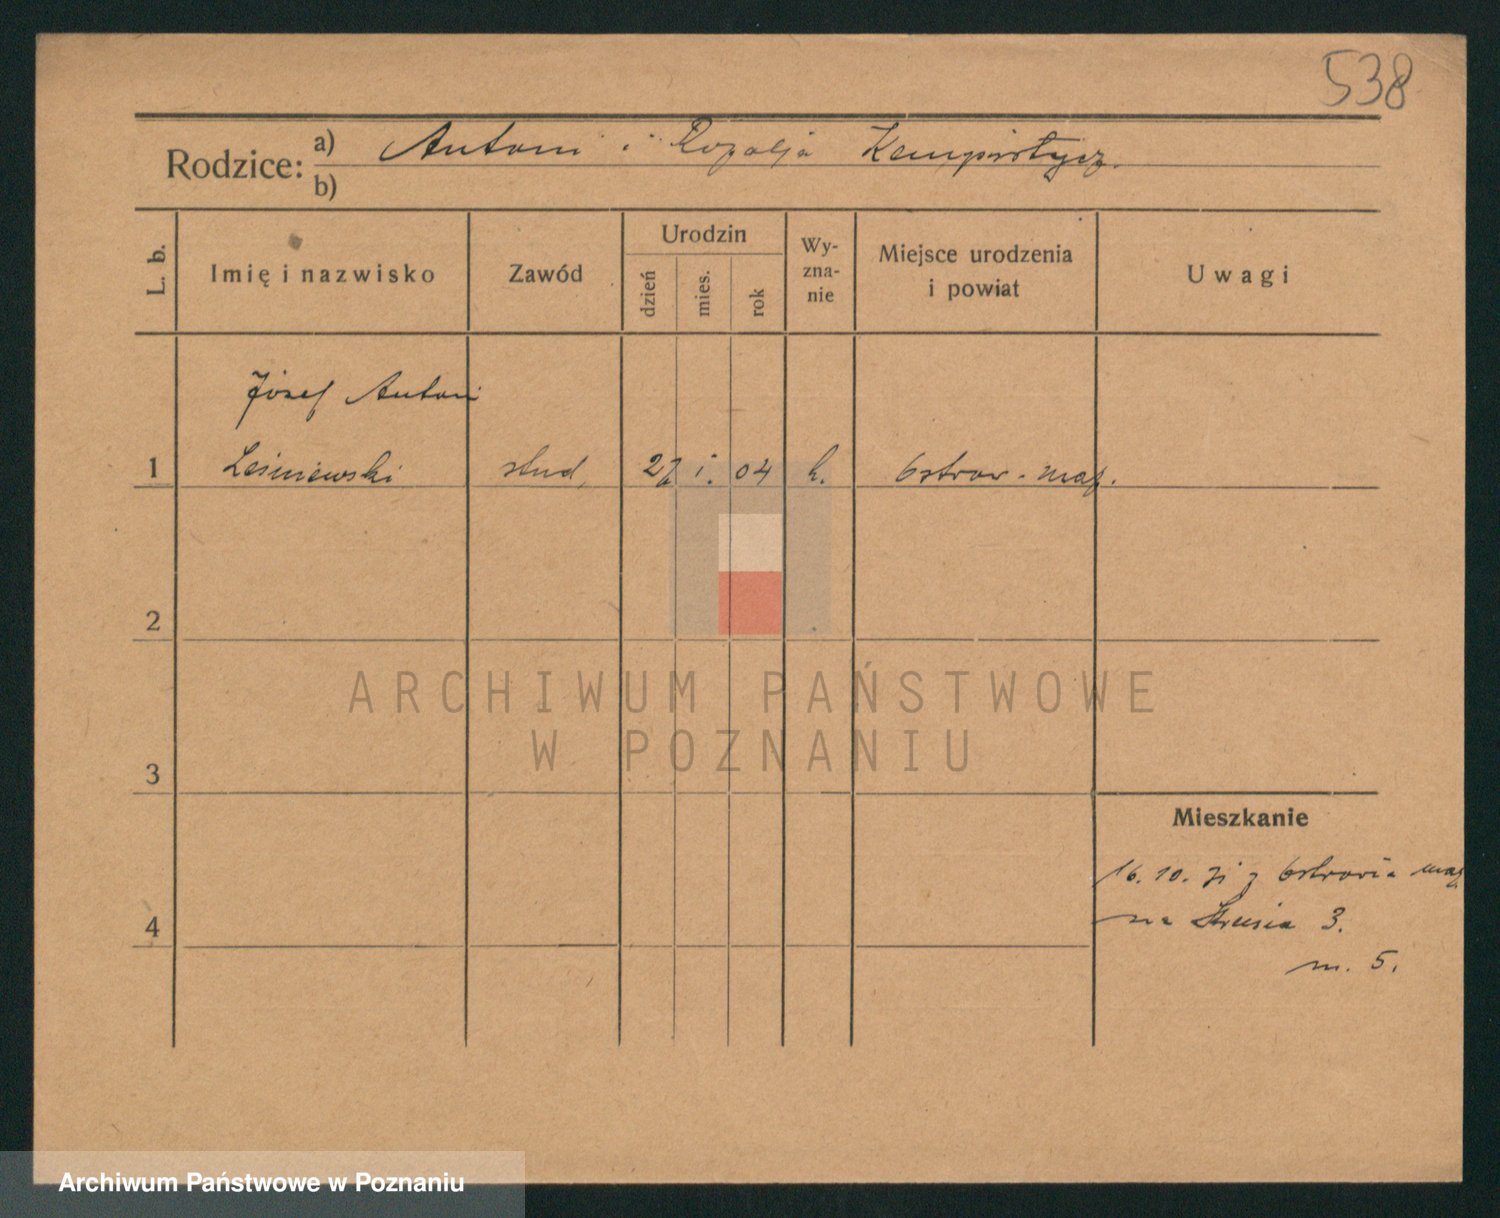 538
Rodzice: a) Antoni i Rozalja Kempistycz.
b)
L. b.
Imię i nazwisko
Zawód
Urodzin
dzień
mies.
rok
Wy-
zna-
nie
Miejsce urodzenia
i powiat
Uwagi
Józef Antoni
1 Leśniewski stud. 27 i. 04 k. Ostrow - maz.
2
3
4
Mieszkanie
16. 10. z Ostrowia maz
na Strusia 3.
m. 5.
ARCHIWUM PAŃSTWOWE
W POZNANIU
Archiwum Państwowe w Poznaniu